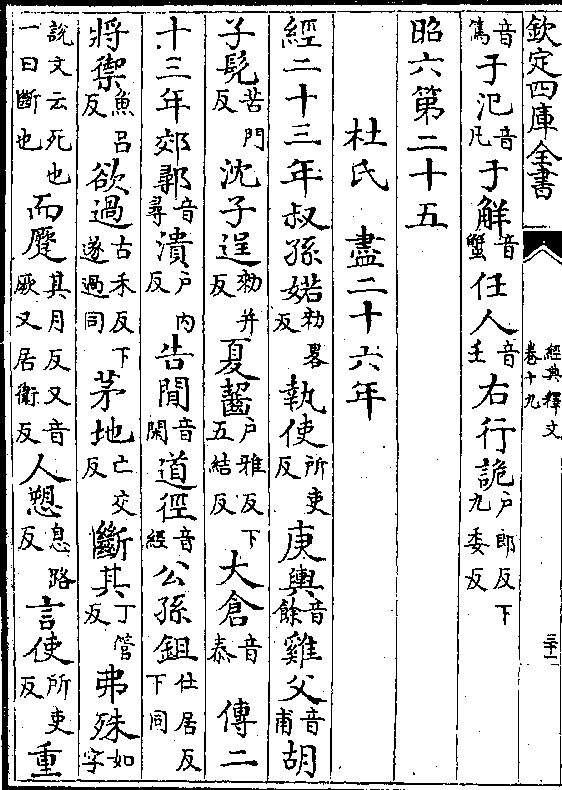 欽定四庫全書
經典釋文
卷十九
三十一
音篤于氾音凡于解音蟹任人音壬右行詭戶郎反下九委反
昭六第二十五
杜氏 盡二十六年
經二十三年叔孫婼勑畧反執使所吏反庚輿音餘雞父音甫胡
子髡苦門反沈子逞勑并反夏齧戶雅反下五結反大倉音泰 傳二
十三年郊鄩音尋潰戶內反告閒音閑道徑音經公孫鉏仕居反下同
將禦魚呂反欲過古禾反下遂過同茅地亡交反斷其丁管反弗殊如字
說文云死也一曰斷也而蹷其月反又音厥又居衛反人愬息路反言使所吏反重